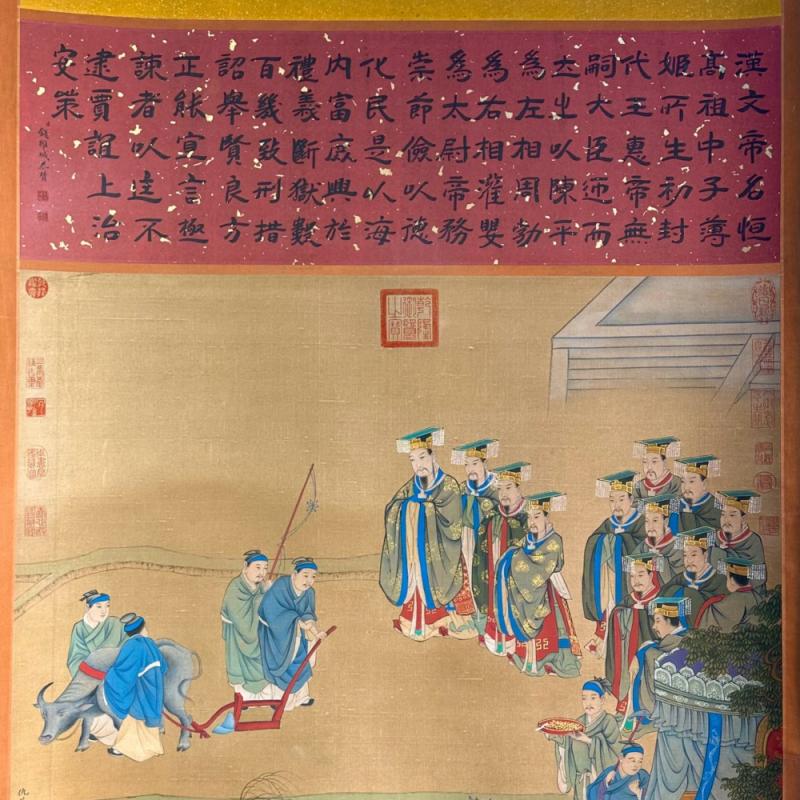 漢文帝名恒
高祖中子薄
姬所生初封
代王惠帝無
嗣大臣迎而
立之以陳平
爲左相周勃
爲右相灌嬰
爲太尉帝務
崇節儉以德
化民是以海
内富庶興於
禮義斷獄數
百幾致刑措
詔舉賢良方
正能宣言極
諫者以逹不
逮賈誼上治
安策
錢維城恭贊
乾隆御覽之寶
仇